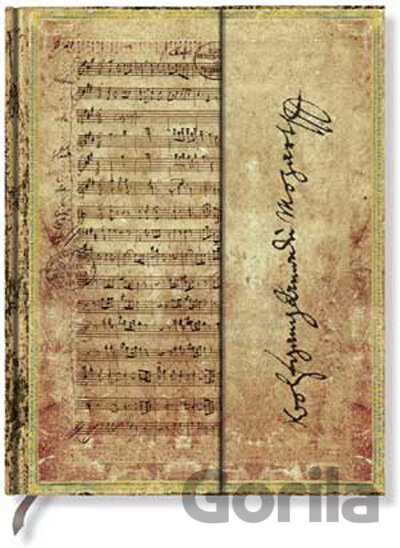 Wolfgang Amadè Mozart
Gorila